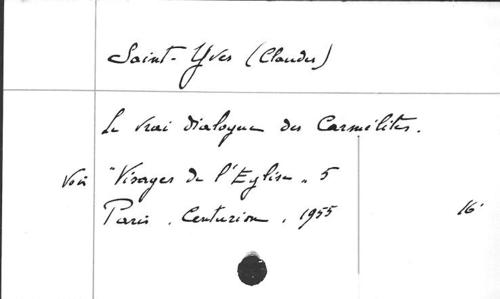 Saint-Yves (Claudes)
Le vrai dialogue des Carmélites.
Voir "Visages de l'Eglise" 5
Paris. Centurion. 1955
16°